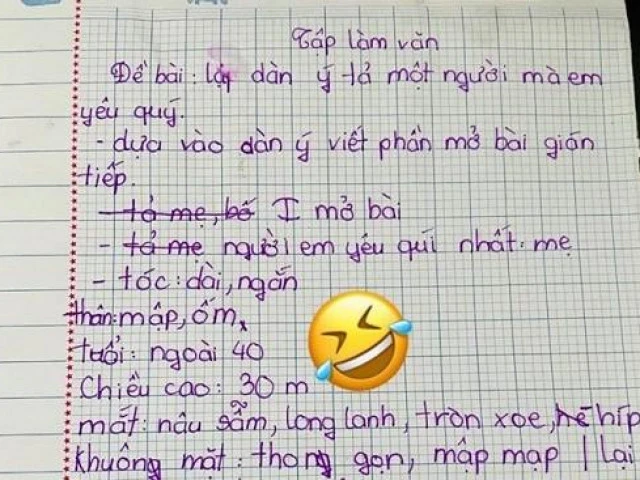 Tập làm văn
Đề bài: lập dàn ý tả một người mà em
yêu quý.
- dựa vào dàn ý viết phần mở bài gián
tiếp.
- tả mẹ, bố I mở bài
- tả mẹ người em yêu quí nhất: mẹ
- tóc: dài, ngắn
thân: mập, ốm,
tuổi: ngoài 40
Chiều cao: 30 m
mắt: nâu sẫm, long lanh, tròn xoe, híp
khuông mặt: thong gọn, mập mạp / lại